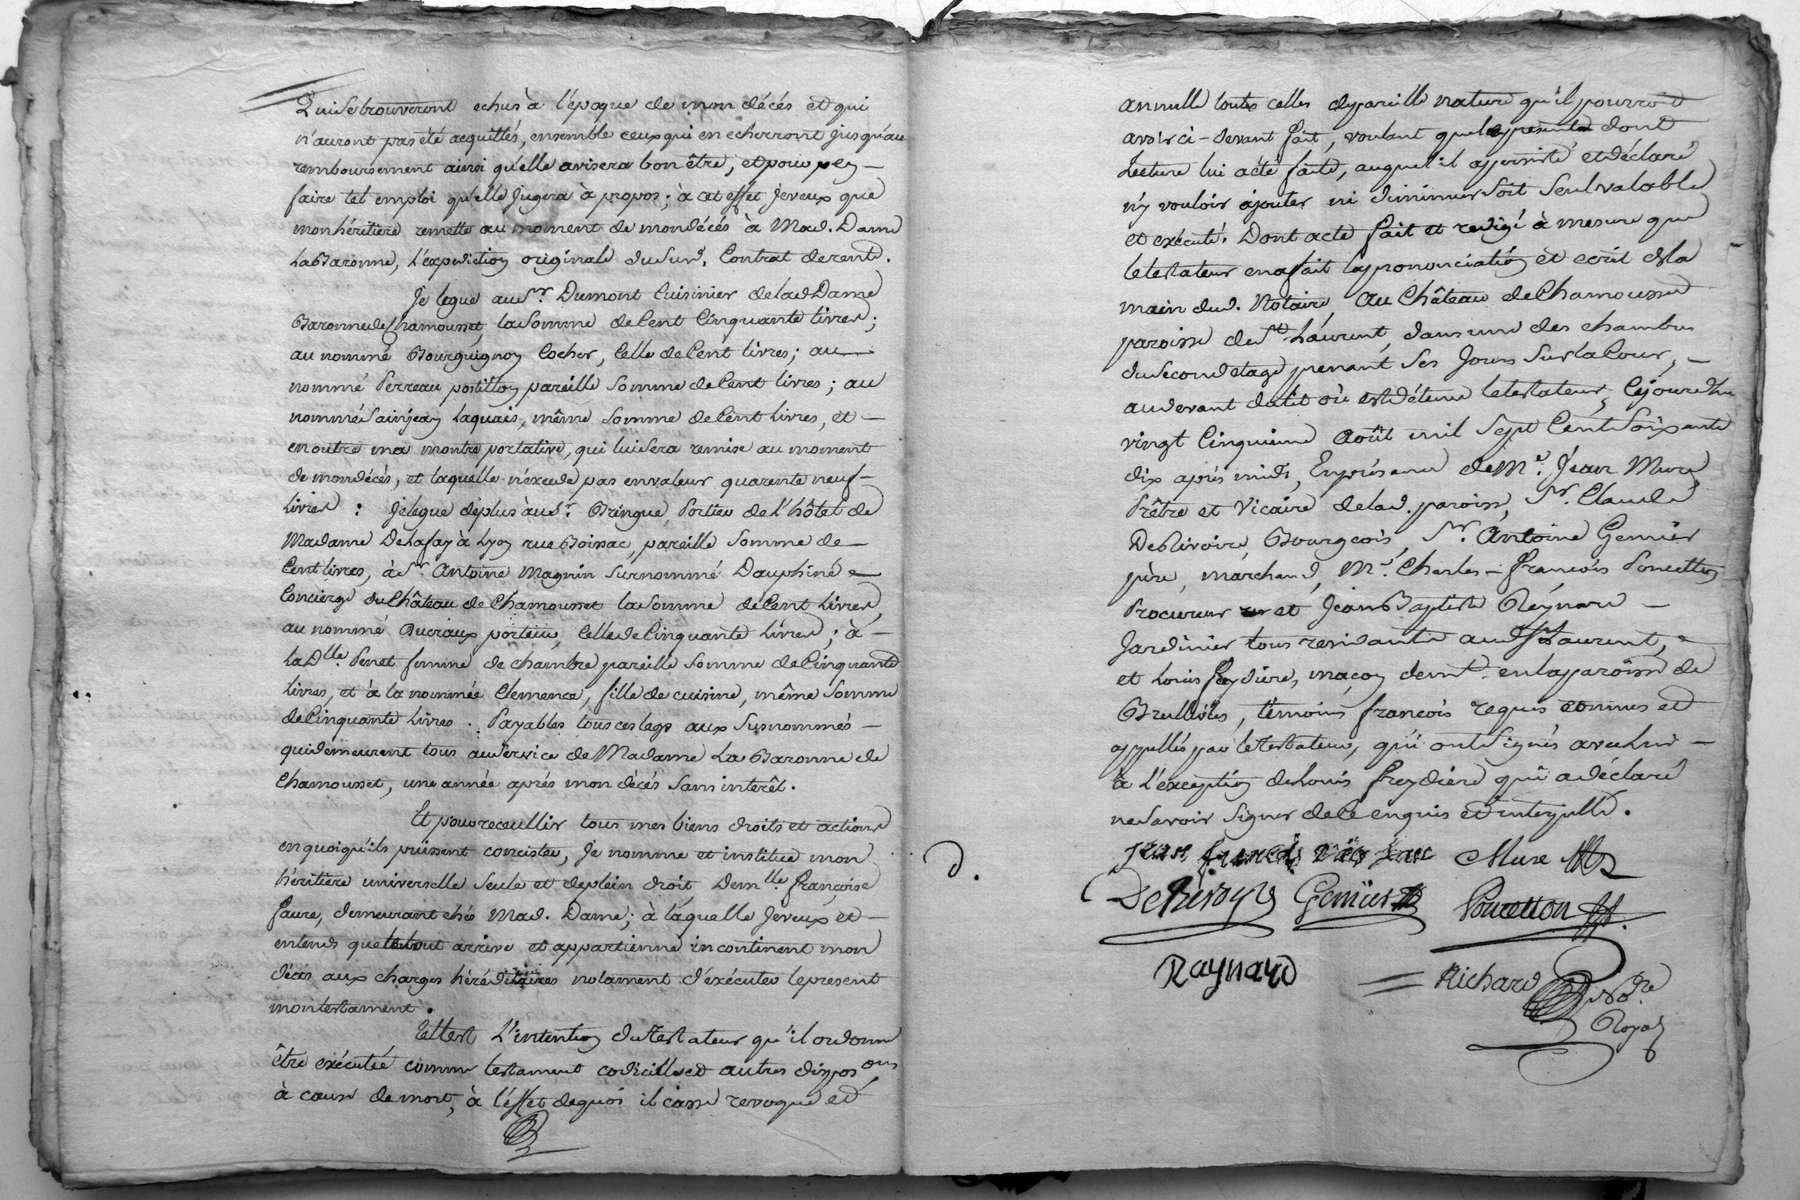 Qui se trouveront echus à l'époque de mon décés et qui
n'auront pas été acquittés, ensemble ceux qui en echerront jusqu'au
remboursement ainsi qu'elle avisera bon être, et pour y en
faire tel emploi qu'elle jugera à propos; à cet effet je veux que
mon héritiere remette au moment de mon décés à Mad. Dame
La Baronne, L'expedition originale du sud. Contrat de rente.
Je legue au Sr. Dumont Cuisinier de lad Dame
Baronne de Chamousset, la somme de Cent Cinquante livres;
au nommé Bourguignon Cocher, Celle de Cent livres; au
nommé Perreau postillon pareille somme de Cent livres; au
nommé Sainjean Laquais, même somme de Cent Livres, et
en outre ma montre portative, qui lui sera remise au moment
de mon décés, et laquelle n'excede pas en valeur quarente neuf
Livres : Je legue de plus au Sr. Bringue, Portier de L'hôtel de
Madame Delafay à Lyon rue Boissac, pareille somme de
Cent livres, à Sr. Antoine Magnin surnommé Dauphiné
Concierge du Château de Chamousset la somme de Cent Livres,
au nommé porteur, Celle de Cinquante Livres; à
La Dlle. Penet femme de chambre pareille somme de Cinquante
Livres, et à la nommée Clemence, fille de cuisine, même somme
de Cinquante Livres. Payables tous ces legs aux susnommés
qui demeurent tous au service de Madame La Baronne de
Chamousset, une année aprés mon décés sans interêt.
Et pour receullir tous mes biens droits et actions
en quoi qu'ils puissent concister, Je nomme et institue mon
héritiere universelle seule et de plein droit Demlle. françoise
faure, demeurant chés Mad. Dame; à laquelle Je veux et
entends que le tout arrive et appartienne incontinent mon
décés aux charges héréditaires notament d'exécuter le present
mon testament.
Telle est L'intention du testateur qu'il ordonne
être exécutée comme testament codicille et autres disposons
à cause de mort, à l'effet de quoi il casse revoque et
annulle toutes celles de pareille nature qu'il pourroit
avoir ci-devant fait, voulant que le present dont
Lecture lui a été faite, auquel il a persisté et déclaré
n'y vouloir ajouter ni diminuer soit seul valable
et exécuté. Dont acte fait et redigé à mesure que
le testateur en a fait la prononciation et ecrit de la
main dud. Notaire, au Château de Chamousset
paroisse de St. Laurent, dans une des chambres
du second etage prenant ses Jours sur la Cour,
au devant du lit où est détenu le testateur, Cejourd'hui
vingt Cinquieme Août mil sept Cent soixante
dix aprés midi, En présence de Mre. Jean Mure
Prêtre et Vicaire de lad. paroisse, Sr. Claude
DeRivoire Bourgeois, Sr. Antoine Gennier
père, marchand, Mr. Charles-françois Poncetton
Procureur et Jean Baptiste Reynard
Jardinier tous residants aud St Laurent,
et Louis freydiere, maçon demt. en la paroisse de
Brullioles, témoins françois requis connus et
appellés par le testateur, qui ont signés avec lui
à L'exception de Louis freydiere qui a déclaré
ne savoir signer de ce enquis et interpellé.
Jean francois Mure
DeRivoyre Gennier Poncetton
Raynard Richard Nore.
Royal